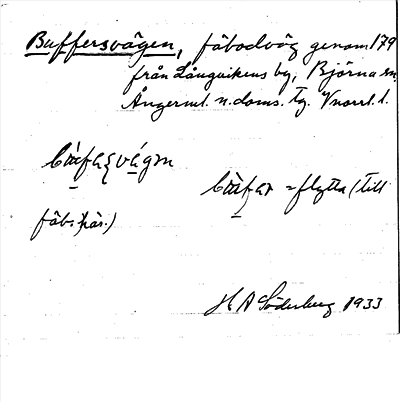 Buffersvägen, fäbodväg genom 179
från Långvikens by, Björna sn,
Ångerml. n. doms. tg. Vnorrl. l.
bùfaʃvágən
bùfar = flytta (till
fäb.)
H A Söderberg 1933